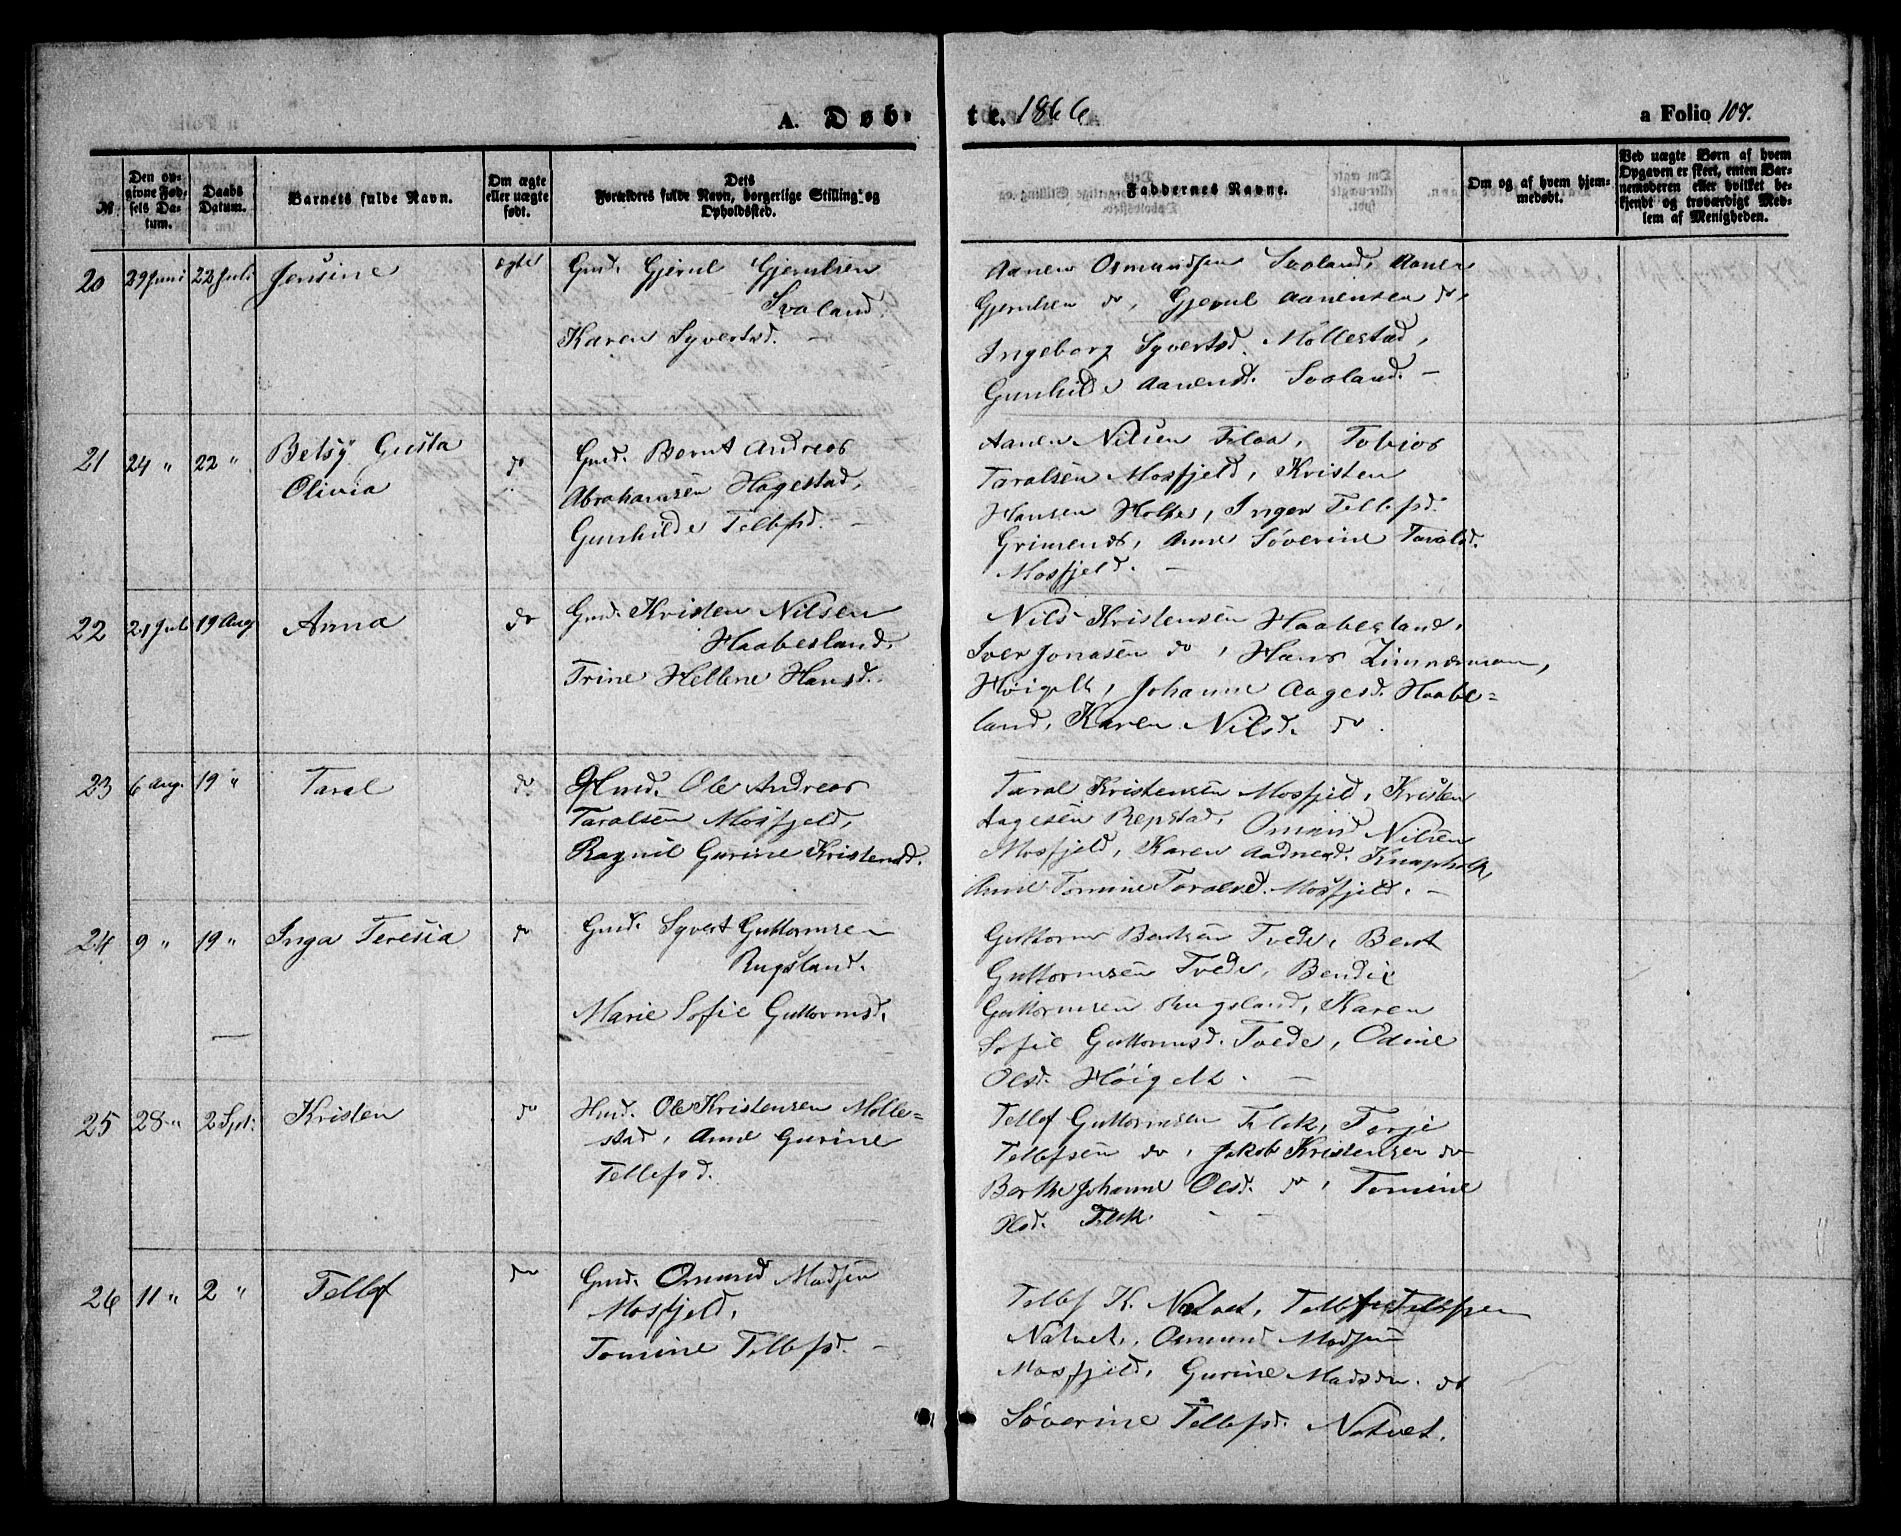 A. Døbte. 1866
a Folio 107.
№
Den opgivne Fødsels Datum.
Daabs Datum.
Barnets fulde Navn.
Om ægte eller uægte født.
Dets Forældres fulde Navn, borgerlige Stilling og Opholdssted.
Faddernes Navne.
Om og af hvem hjemmedøbt.
Ved uægte Børn af hvem Opgaven er skeet, enten Barnemoderen eller hvilket bekjendt og troværdigt Medlem af Menigheden.
20 29 Juni 22 Juli Jensine ægte
Gmd. Gjerul Gjerulsen
Svaland,
Karen Syvertsd. –
Aanen Osmundsen Svaland, Aanen
Gjerulsen do, Gjerul Aanensen do,
Ingeborg Syvertsd. Mollestad,
Gunhilde Aanensd. Svaland. –
21 24 " 22 " Betsy Gusta
Olivia
do
Gmd. Bernt Andreas
Abrahamsen Hagestad,
Gunhilde Tellefsd. –
Aanen Nilsen Flaa, Tobias
Taralsen Mosfjeld, Kristen
Hansen Holte, Inger Tellefsd.
Grimenæs, Anne Søverine Taralsd.
Mosfjeld. –
22 21 Juli 19 Aug Anna do
Gmd. Kristen Nilsen
Haabesland,
Trine Hellene Hansd.
Nils Kristensen Haabesland,
Iver Jonasen do, Hans Zimmerman,
Høigelt, Johanne Aagesd. Haabes=
land, Karen Nilsd. do.
23 6 Aug. 19 " Taral do
Hmd. Ole Andreas
Taralsen Mosfjeld,
Ragnil Gurine Kristensd.
Taral Kristensen Mosfjeld, Kristen
Aagesen Repstad, Omund Nilsen
Mosfjeld, Karen Aadnesd. Knapholt,
Anne Tomine Taralsd. Mosfjeld. –
24 9 " 19 " Inga Teresia do
Gmd. Syvert Guttormsen
Rugsland.
Marie Sofie Guttormsd.
Guttorm Bentsen Tvede, Bent
Guttormsen Tvede, Bendix
Guttormsen Rugsland, Karen
Sofie Guttormsd. Tvede, Odine
Olsd. Høigelt. –
25 28 " 2 Spt: Kristen do
Hmd. Ole Kristensen Molle=
stad, Anne Gurine
Tellefsd.
Tellef Guttormsen Flak, Terje
Tellefsen do, Jakob Kristensen do
Berthe Johanne Olsd. do, Tomine
Olsd. Flak.
26 11 " 2 " Tellef do
Gmd. Omund Madsen
Mosfjeld,
Tomine Tellefsd. –
Tellef K. Natvet, Tellef Tellefsen
Natvet, Omund Madsen
Mosfjeld, Gurine Madsd. do
Søverine Tellefsd. Natvet.